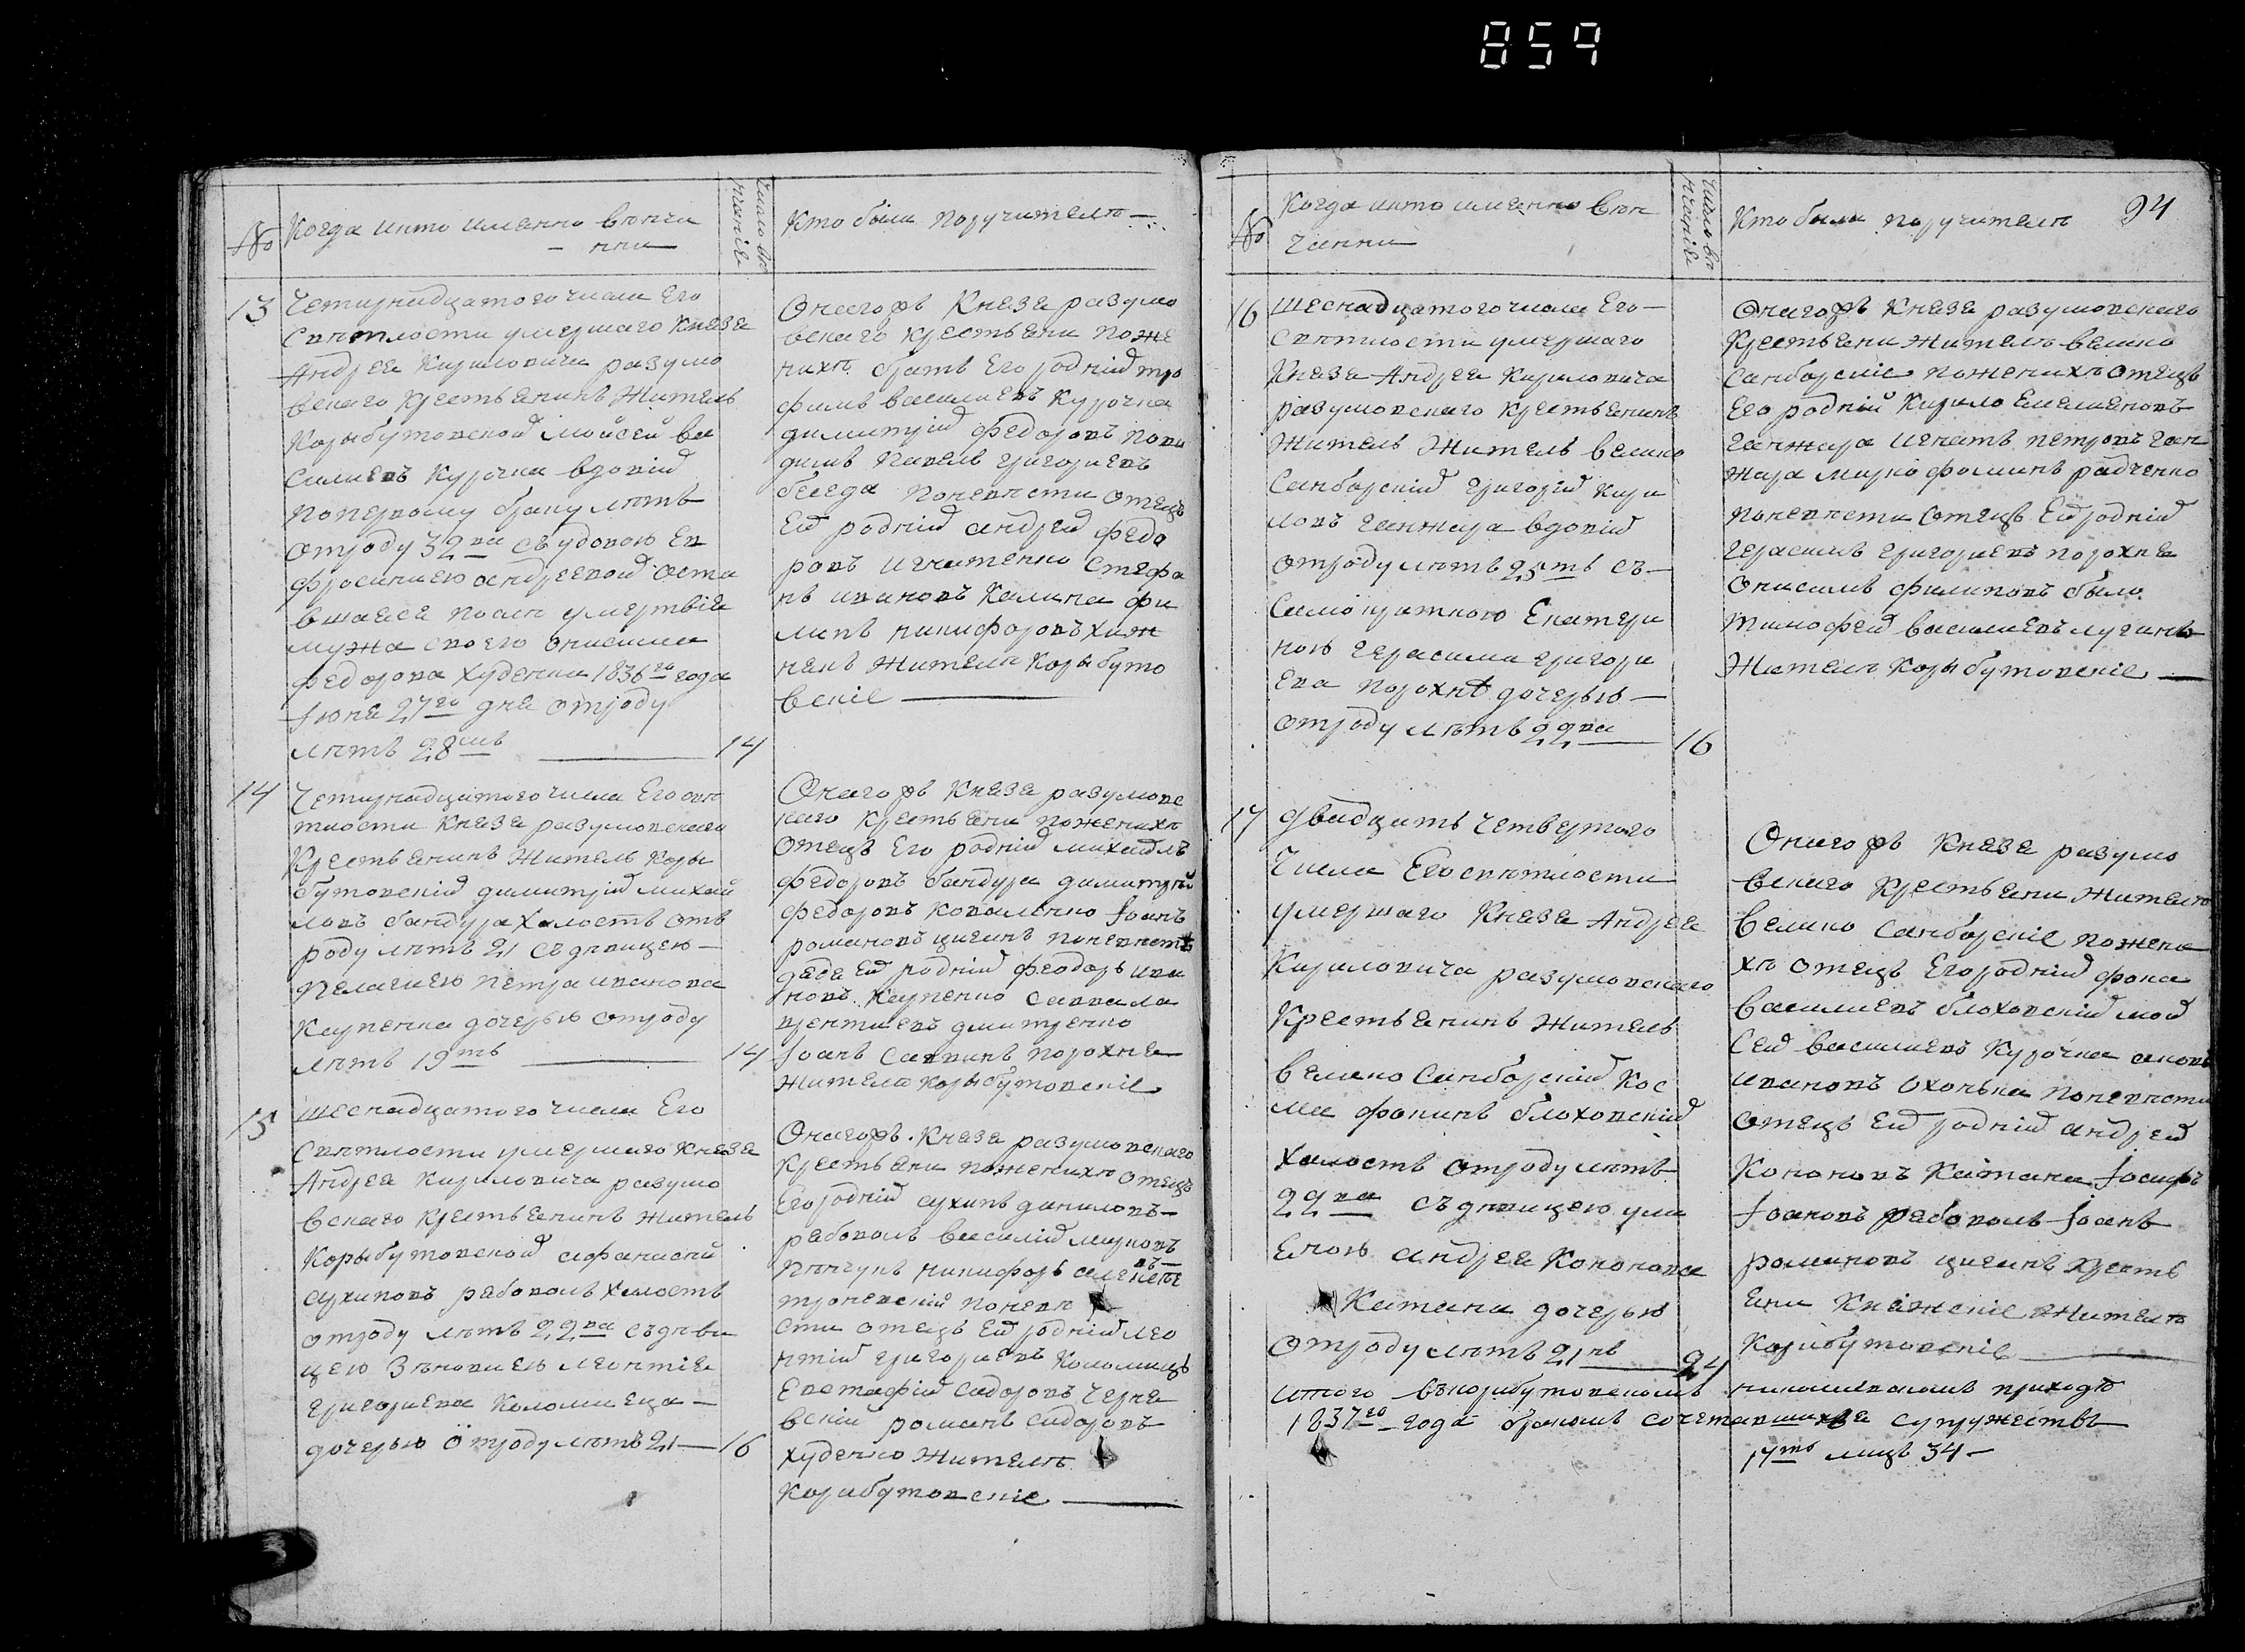 859
№ Когда икто именно венча
нни
Число вѣ
нчаніе
Кто были поручителѣ
13
Четирнадцатого числа Его
Свѣтлости умершаго Князя
Андрея Кириловича разумо
вскаго крестьянинъ Житель
Корыбутовской мойсей ва
силиевъ Курочка вдовій
поперъвому браку лѣтъ
отроду 32 ва съ удовою Ев
фросиниею андреевой оста
вшаяся послѣ умертвія
мужа своего онисима
федорова худенка 1836го года
Іюня 27го дня отроду
лѣтъ 28мъ 14
Онагожъ Князя разумо
вскаго крестьяни поже
нихѣ братъ Его родній тро
фимъ василиевъ Курочка
димитрій федоровъ
павелъ григориевъ
беседа поневѣсти отецъ
Ей родній андрей федо
ровъ Игнатенко Стефа
нъ ивановъ Калина фи
липъ никифоровъ
Жителѣ Корыбуто
вскіе
14
Четирнадцатого числа Его свѣ
тлости Князя разумовскаго
Крестьянинъ Житель Коры
бутовскій димитрій михай
ловъ бандура Холостъ отъ
роду лѣтъ 21 съ дѣвицею
Пелагиею петра иванова
Карпенка дочерью отроду
лѣтъ 19ть 14
Онагожъ Князя разумовс
каго крестьяни поженихѣ
отецъ Его родній михайлъ
федоровъ бандура димитрій
федоровъ коваленко Іоанъ
романовъ циганъ поневѣстѣ
дядя Ей родній феодоръ ива
новъ Карпенко савва ла
врентиевъ дмитренко
Іоанъ саввинъ порохня
Жителѣ корыбутовскіе
15
шеснадцатого числа Его
Свѣтлости умершаго Князя
Андрея кириловича разумо
вскаго крестьянинъ житель
Корыбутовской афанасій
архиповъ рабоволъ холостъ
отроду лѣтъ 22ва съ дѣви
цею Зѣновиею леонтия
григориева Коломийца
дочерью отроду лѣтъ 21 16
Онагожъ Князя разумовскаго
Крестьяни поженихѣ отецъ
Его родній архипъ даниловъ
рабоволъ василій марковъ
никифоръ
поневѣ
сти отецъ Ей родній лео
нтій григориевъ Коломиецъ
Евстафій сидоровъ Черня
вскій романъ сидоровъ
худенко Жителѣ
Корибутовскіе
94
№ Когда икто именно вѣн
чанни
Число вѣ
нчаніе
Кто были поручителѣ
16
шеснадцатого числа Его
Свѣтлости умершаго
Князя Андрея Кириловича
разумовскаго Крестьянинъ
Житель Житель велико
Санборскій григорій кири
ловъ ганжара вдовій
отроду лѣтъ 25ть съ
Екатери
ною герасима григори
ева порохнѣ дочерью
отроду лѣтъ 22ва 16
Онагожъ Князя разумовскаго
Крестьяни Жителѣ велико
Санборскіе поженихѣ отецъ
Его родній Кирило Емелияновъ
ганжара игнатъ петровъ ган
жара марко фоминъ радченко
поневѣсти отецъ Ей родній
герасимъ григориевъ порохня
онисимъ филиповъ
тимофей василиевъ
Жителѣ Корыбутовскіе
17
двадцать четвертого
Числа Его свѣтлости
умершаго Князя Андрея
Кириловича разумовскаго
Крестьянинъ Житель
велико Санборскій Кос
ма фокинъ блоховскій
холостъ отроду лѣтъ
22ва съ дѣвицею ули
Еною андрея Кононова
Катана дочерью
отроду лѣтъ 21 24
Онагожъ Князя разумо
вскаго крестьяни Жителѣ
велико санборскіе пожени
хѣ отецъ Его родній фока
василиевъ блоховскій мой
сей василиевъ Курочка
ивановъ поневѣсти
отецъ Ей родній андрей
Кононовъ Катана Іосифъ
Іоановъ рабоволъ Іоанъ
романовъ циганъ кресть
яни Княжеские Жителѣ
Корибутовскіе
Итого въкорибутовскомъ николаевскомъ приходѣ
1837го года бракомъ сочетавшихся супружествъ
17ть лицъ 34